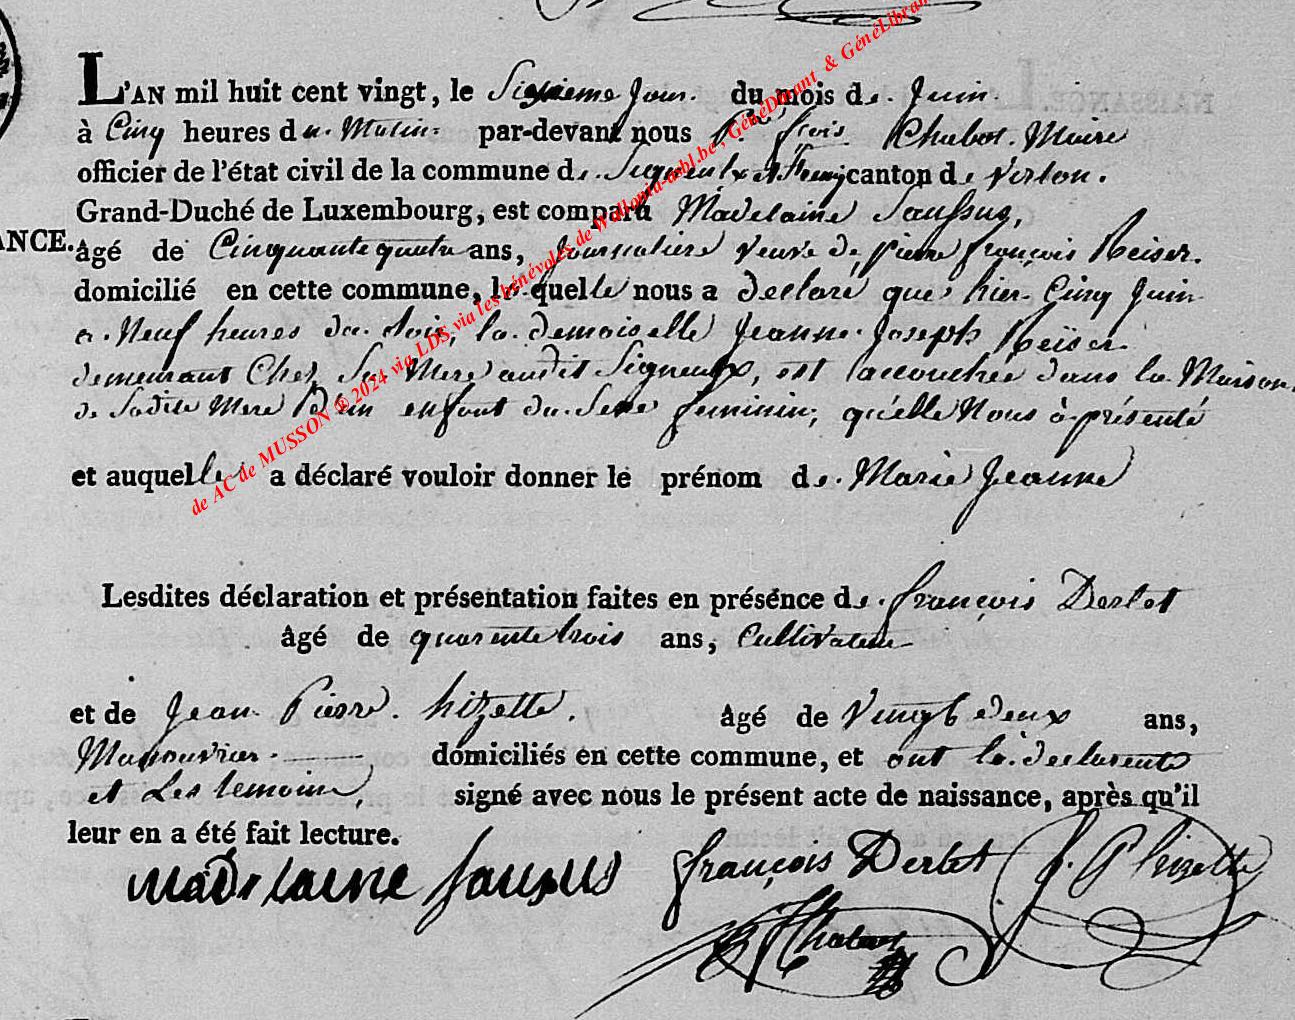 L'AN mil huit cent vingt, le Sixieme Jour. du mois de. Juin.
à Cinq heures du. Matin. par-devant nous frois. Chabot. Maire
officier de l'état civil de la commune de. Signeulx et canton de Virton.
Grand-Duché de Luxembourg, est comparu Madelaine Saussus,
ANCE. âgé de Cinquante quatre ans, Journaliere veuve de pierre françois Reiser.
domicilié en cette commune, lequelle nous a declaré que hier Cinq Juin
a. Neuf heures du. Soir, la demoiselle Jeanne. Joseph Reiser.
demeurant Chez Sa Mere audit Signeulx, est laccouchée dans la Maison.
de Sadite Mere D'un enfant du. Sexe feminin, qu'elle Nous à présenté
et auquelle a déclaré vouloir donner le prénom de. Marie Jeanne
Lesdites déclaration et présentation faites en présence de. françois Derlet
âgé de quarente trois ans, Cultivateur
et de Jean Pierre. hizette. âgé de Vingt deux ans,
Manouvrier. domiciliés en cette commune, et ont la. declarente
et Les temoins, signé avec nous le présent acte de naissance, après qu'il
leur en a été fait lecture.
madelaine sausus françois Derlet J. P hizette
Chabot
de AC de MUSSON ® 2024 via LDS via les bénévoles de Wallonia-asbl.be, GénéDinant & GénéLibran